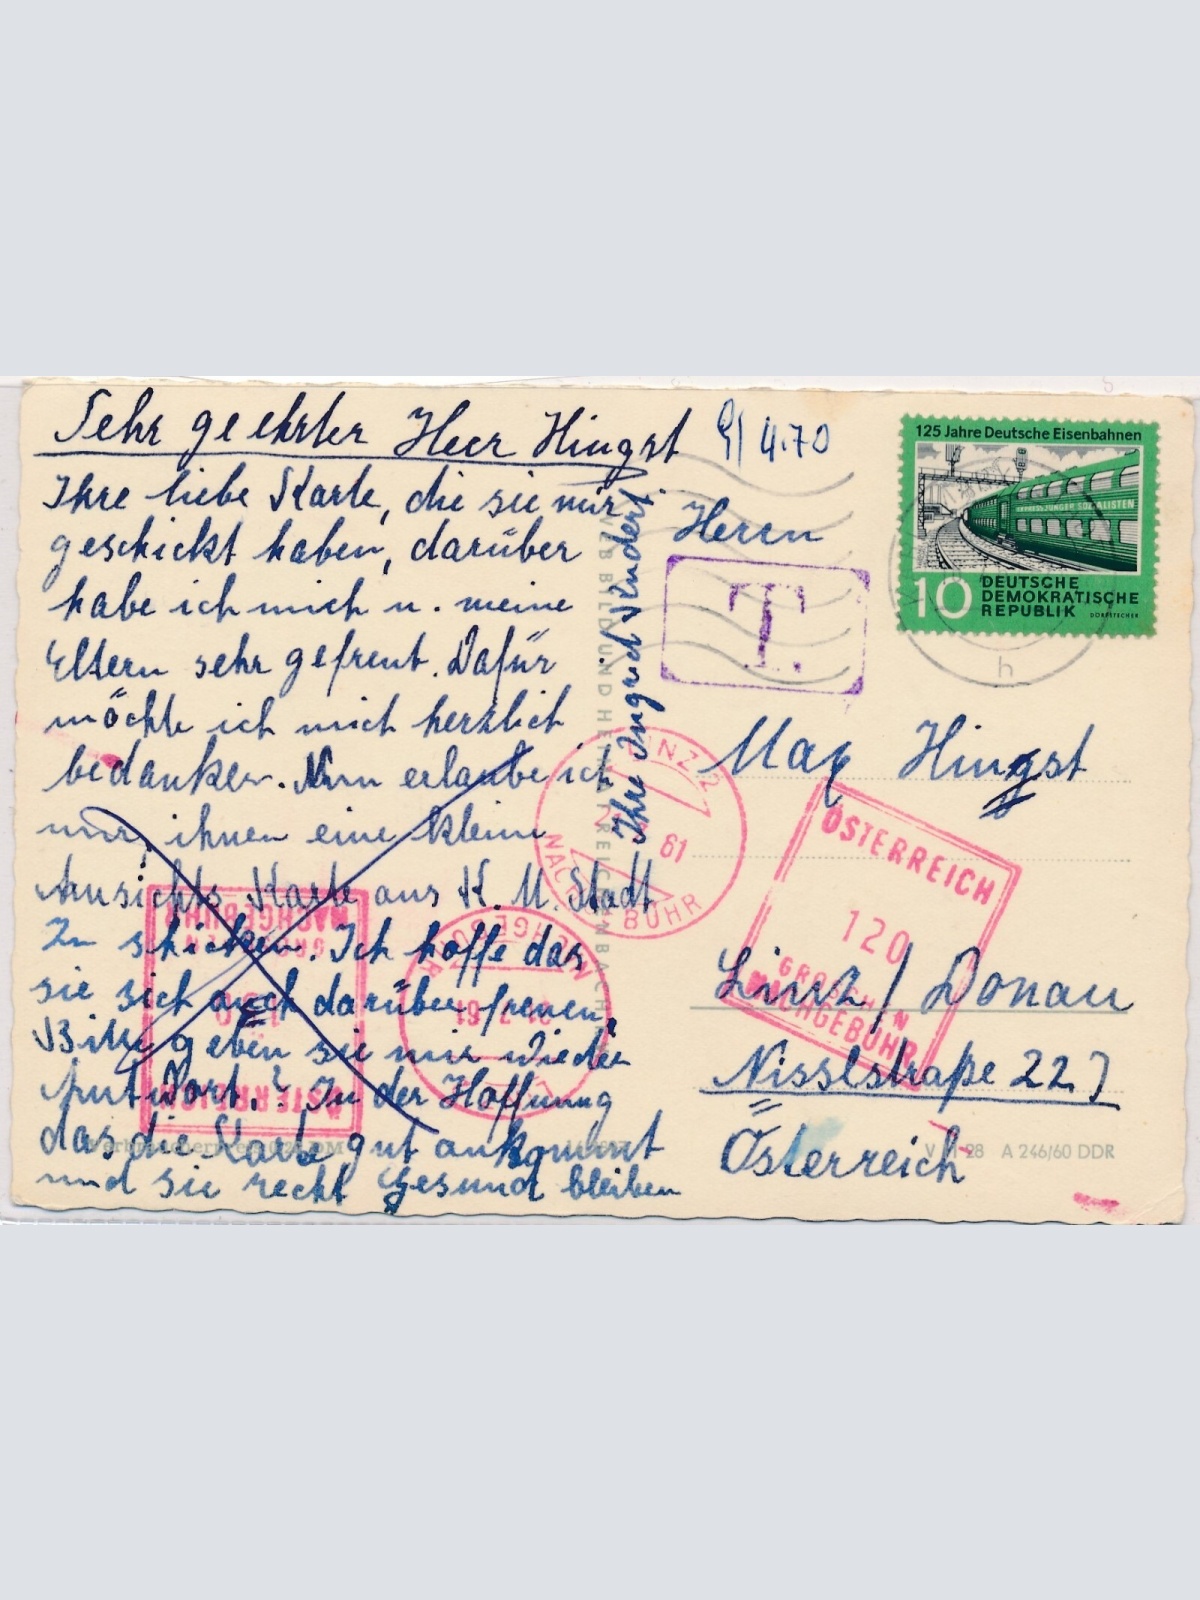 Sehr geehrter Herr Hingst
Ihre liebe Karte, die sie mir
geschickt haben, darüber
habe ich mich u. meine
Eltern sehr gefreut. Dafür
möchte ich mich herzlich
bedanken. Nun erlaube ich
mir, ihnen eine kleine
Ansichts Karte aus K. M. Stadt
Zu schicken. Ich hoffe das
sie sich auch darüber freuen,
Bitte geben sie mir wieder
Antwort.? In der Hoffnung
das die Karte gut ankommt
und sie recht Gesund bleiben
Ihre Ingrid Kindert
4.70
125 Jahre Deutsche Eisenbahnen
EXPRESS JUNGER SOZIALISTEN
10 DEUTSCHE
DEMOKRATISCHE
REPUBLIK
h
T
Herrn
Max Hingst
Linz / Donau
Nisslstraße 22
Österreich
LINZ 2
61
NACHGEBÜHR
ÖSTERREICH
120
GROSCHEN
NACHGEBÜHR
NACHGEBÜHR
61
NACHGEBÜHR
ÖSTERREICH
VEB BILD UND HEIMAT REICHENBACH
28 A 246/60 DDR